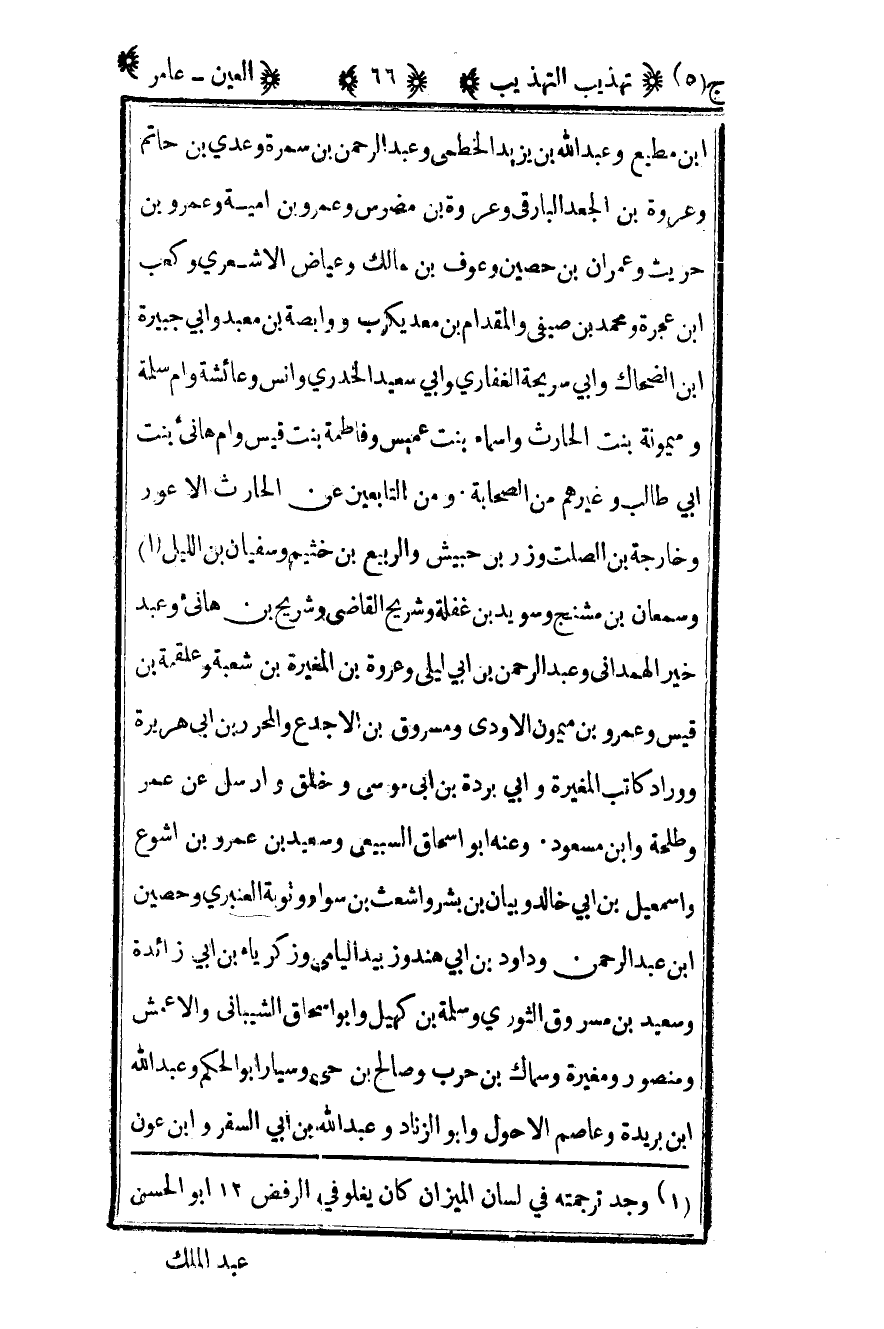 ج(٥) تهذيب التهذيب ٦٦ العين - عامر
ابن مطيع وعبدالله بن يزيد الخطمى وعبدالرحمن بن سمرة وعدي بن حاتم
وعروة بن الجعد البارقى وعروة بن مضرس وعمرو بن امية وعمرو بن
حريث وعمران بن حصين وعوف بن مالك وعياض الاشعري وكعب
ابن عجرة ومحمد بن صيفى والمقدام بن معديكرب ووابصة بن معبد وابي جبيرة
ابن الضحاك وابي سريحة الغفاري وابي سعيد الخدري وانس وعائشة وام سلمة
وميمونة بنت الحارث واسماء بنت عميس وفاطمة بنت قيس وام هانئ بنت
ابي طالب وغيرهم من الصحابة . ومن التابعين عن الحارث الاعور
وخارجة بن الصلت وزر بن حبيش والربيع بن خثيم وسفيان بن الليل (١)
وسمعان بن مشنج وسويد بن غفلة وشريح القاضى وشريح بن هانئ وعبد
خير الهمدانى وعبدالرحمن بن ابي ليلى وعروة بن المغيرة بن شعبة وعلقمة بن
قيس وعمرو بن ميمون الاودى ومسروق بن الاجدع والمحرر بن ابى هريرة
ووراد كاتب المغيرة وابي بردة بن ابى موسى وخلق وارسل عن عمر
وطلحة وابن مسعود . وعنه ابو اسحاق السبيعى وسعيد بن عمرو بن اشوع
واسمعيل بن ابي خالد وبيان بن بشر واشعث بن سوار وتوبة العنبري وحصين
ابن عبدالرحمن وداود بن ابي هند وزبيد اليامى وزكرياء بن ابي زائدة
وسعيد بن مسروق الثوري وسلمة بن كهيل وابو اسحاق الشيبانى والاعمش
ومنصور ومغيرة وسماك بن حرب وصالح بن حى وسيار ابو الحكم وعبدالله
ابن بريدة وعاصم الاحول وابو الزناد وعبدالله بن ابي السفر وابن عون
(١) وجد ترجمته في لسان الميزان كان يغلو في الرفض ١٢ ابو الحسن
عبد الملك